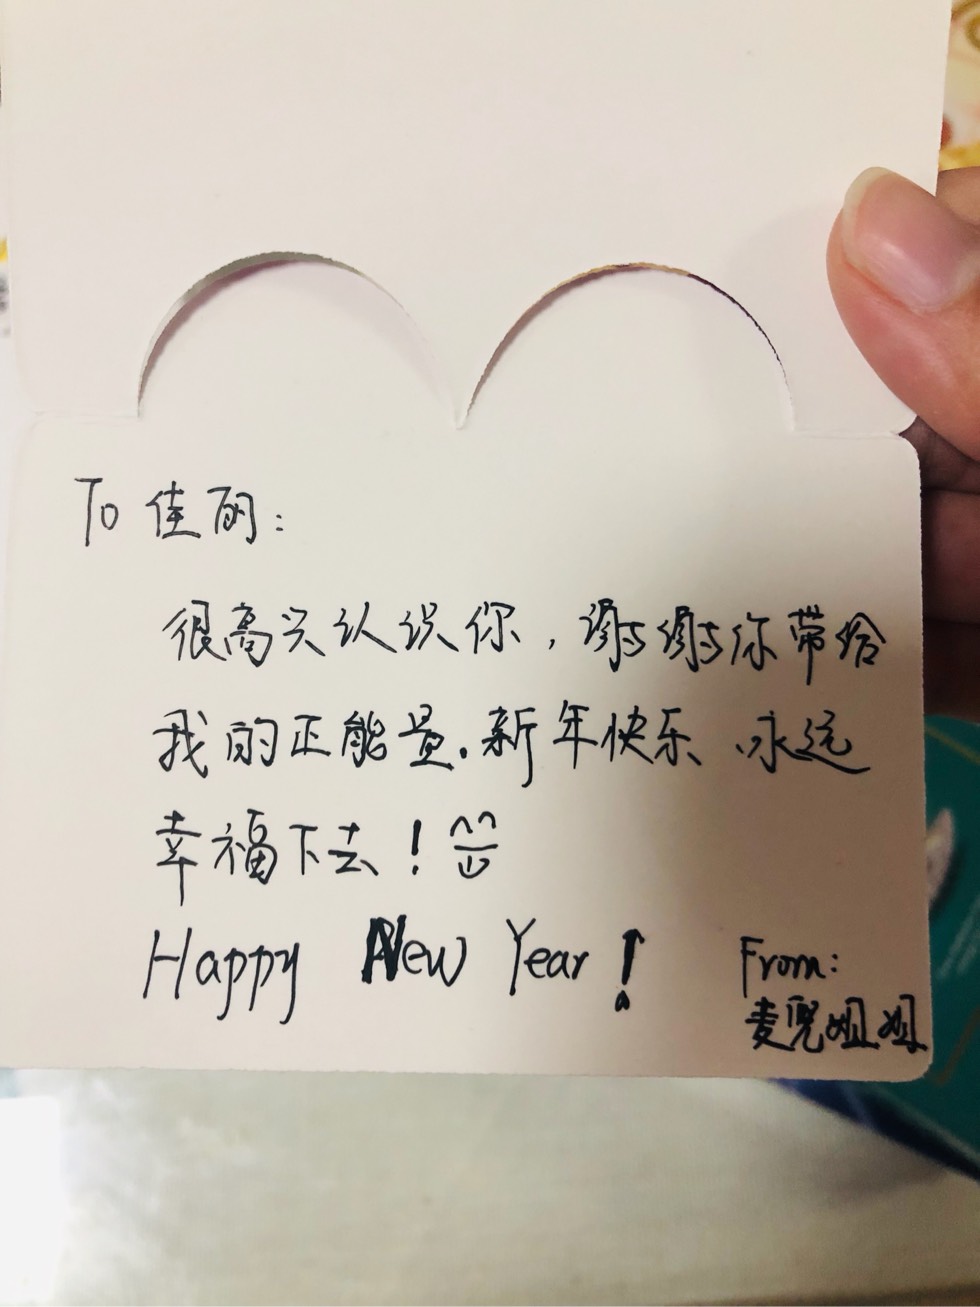 To 佳丽:
很高兴认识你,谢谢你带给
我的正能量.新年快乐、永远
幸福下去!
Happy New Year!
From:
麦兜姐姐